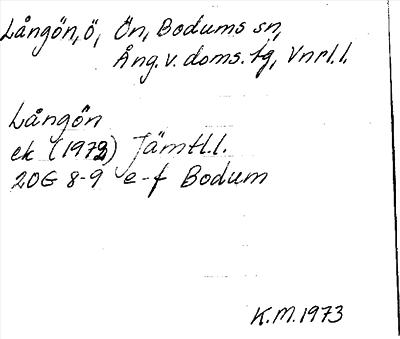 Långön, ö, Ön, Bodums sn,
Ång.v. doms. tg, Vnrl.l.
Långön
ek (1972) Jämtl.l.
20G 8-9 e-f Bodum
K.M. 1973